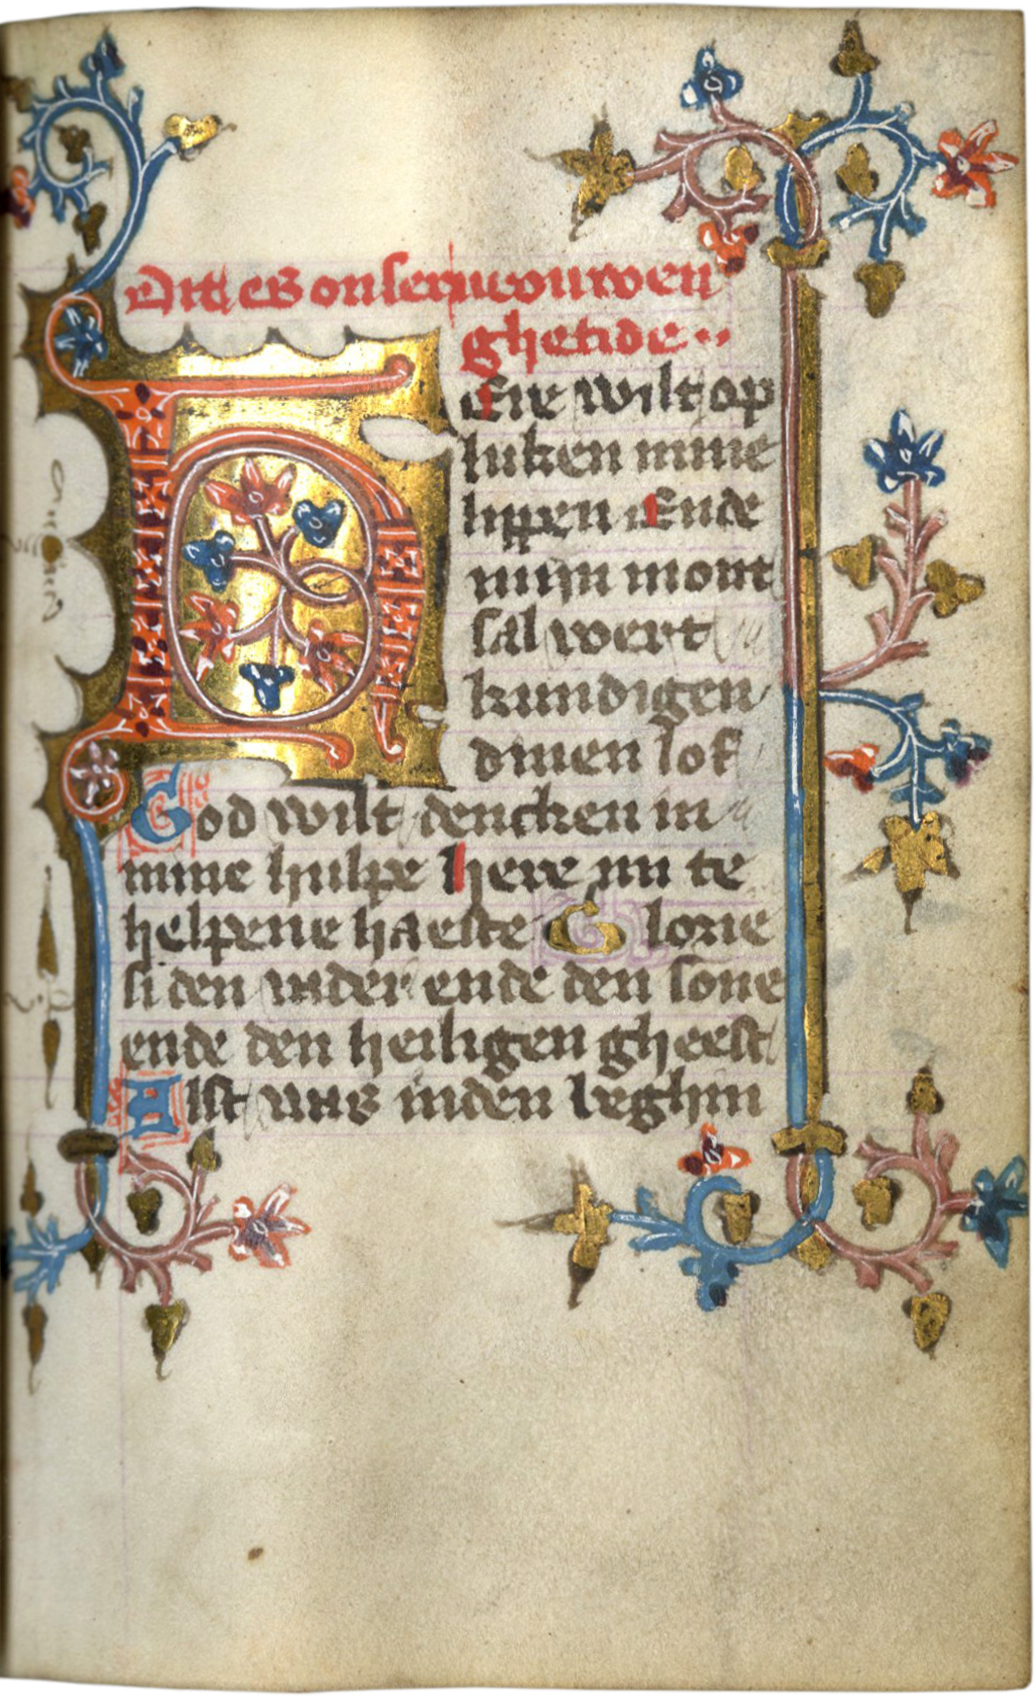 Dit es onser vrouwen
ghetide
Here wilt op
luken mine
lippen Ende
mijn mont
sal wert
kundigen
dinen lof
God wilt dencken in
mine hulpe here mi te
helpene haeste Glorie
si den vader ende den sone
ende den heiligen gheest
Alst was inden beghin